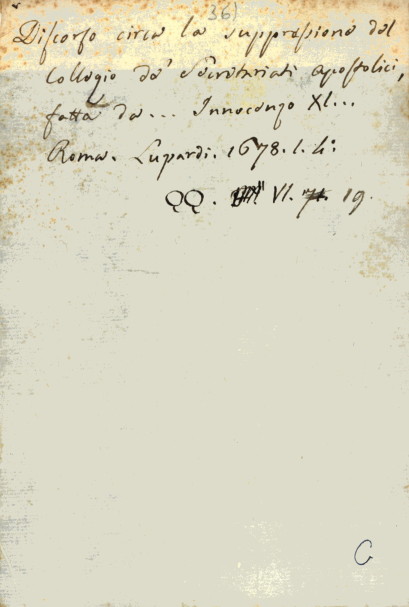 361
Discorso circa la suppressione del
Collegio de' Secretariati apostolici,
fatta da... Innocenzo XI...
Roma. Lupardi. 1678. l. 4:
QQ. VI. 19.
C